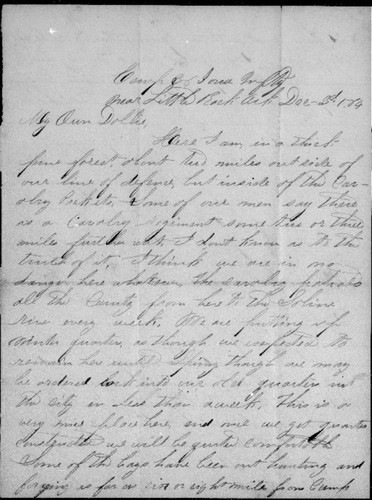 Camp Iowa Infty
near Little Rock Ark Dec 3d 1864
My Own Dollie,
Here I am in a thick
pine forest about two miles outside of
our line of defence, but inside of the Cav-
alry Pickets, Some of our men say there
is a Cavalry regiment some two or three
miles further out. I don't know as to the
truth of it. I think we are in no
danger here whatever, the cavalry patrols
all the County from here to the Saline
river every week. We are putting up
winter quarters, as though we expected to
remain here until Spring though we may
be ordered back into our old quarters in
the City in less than a week. This is a
very nice place here, and once we get quarters
completed we will be quite comfortable
Some of the boys have been out hunting and
foraging as far as six or eight miles from Camp